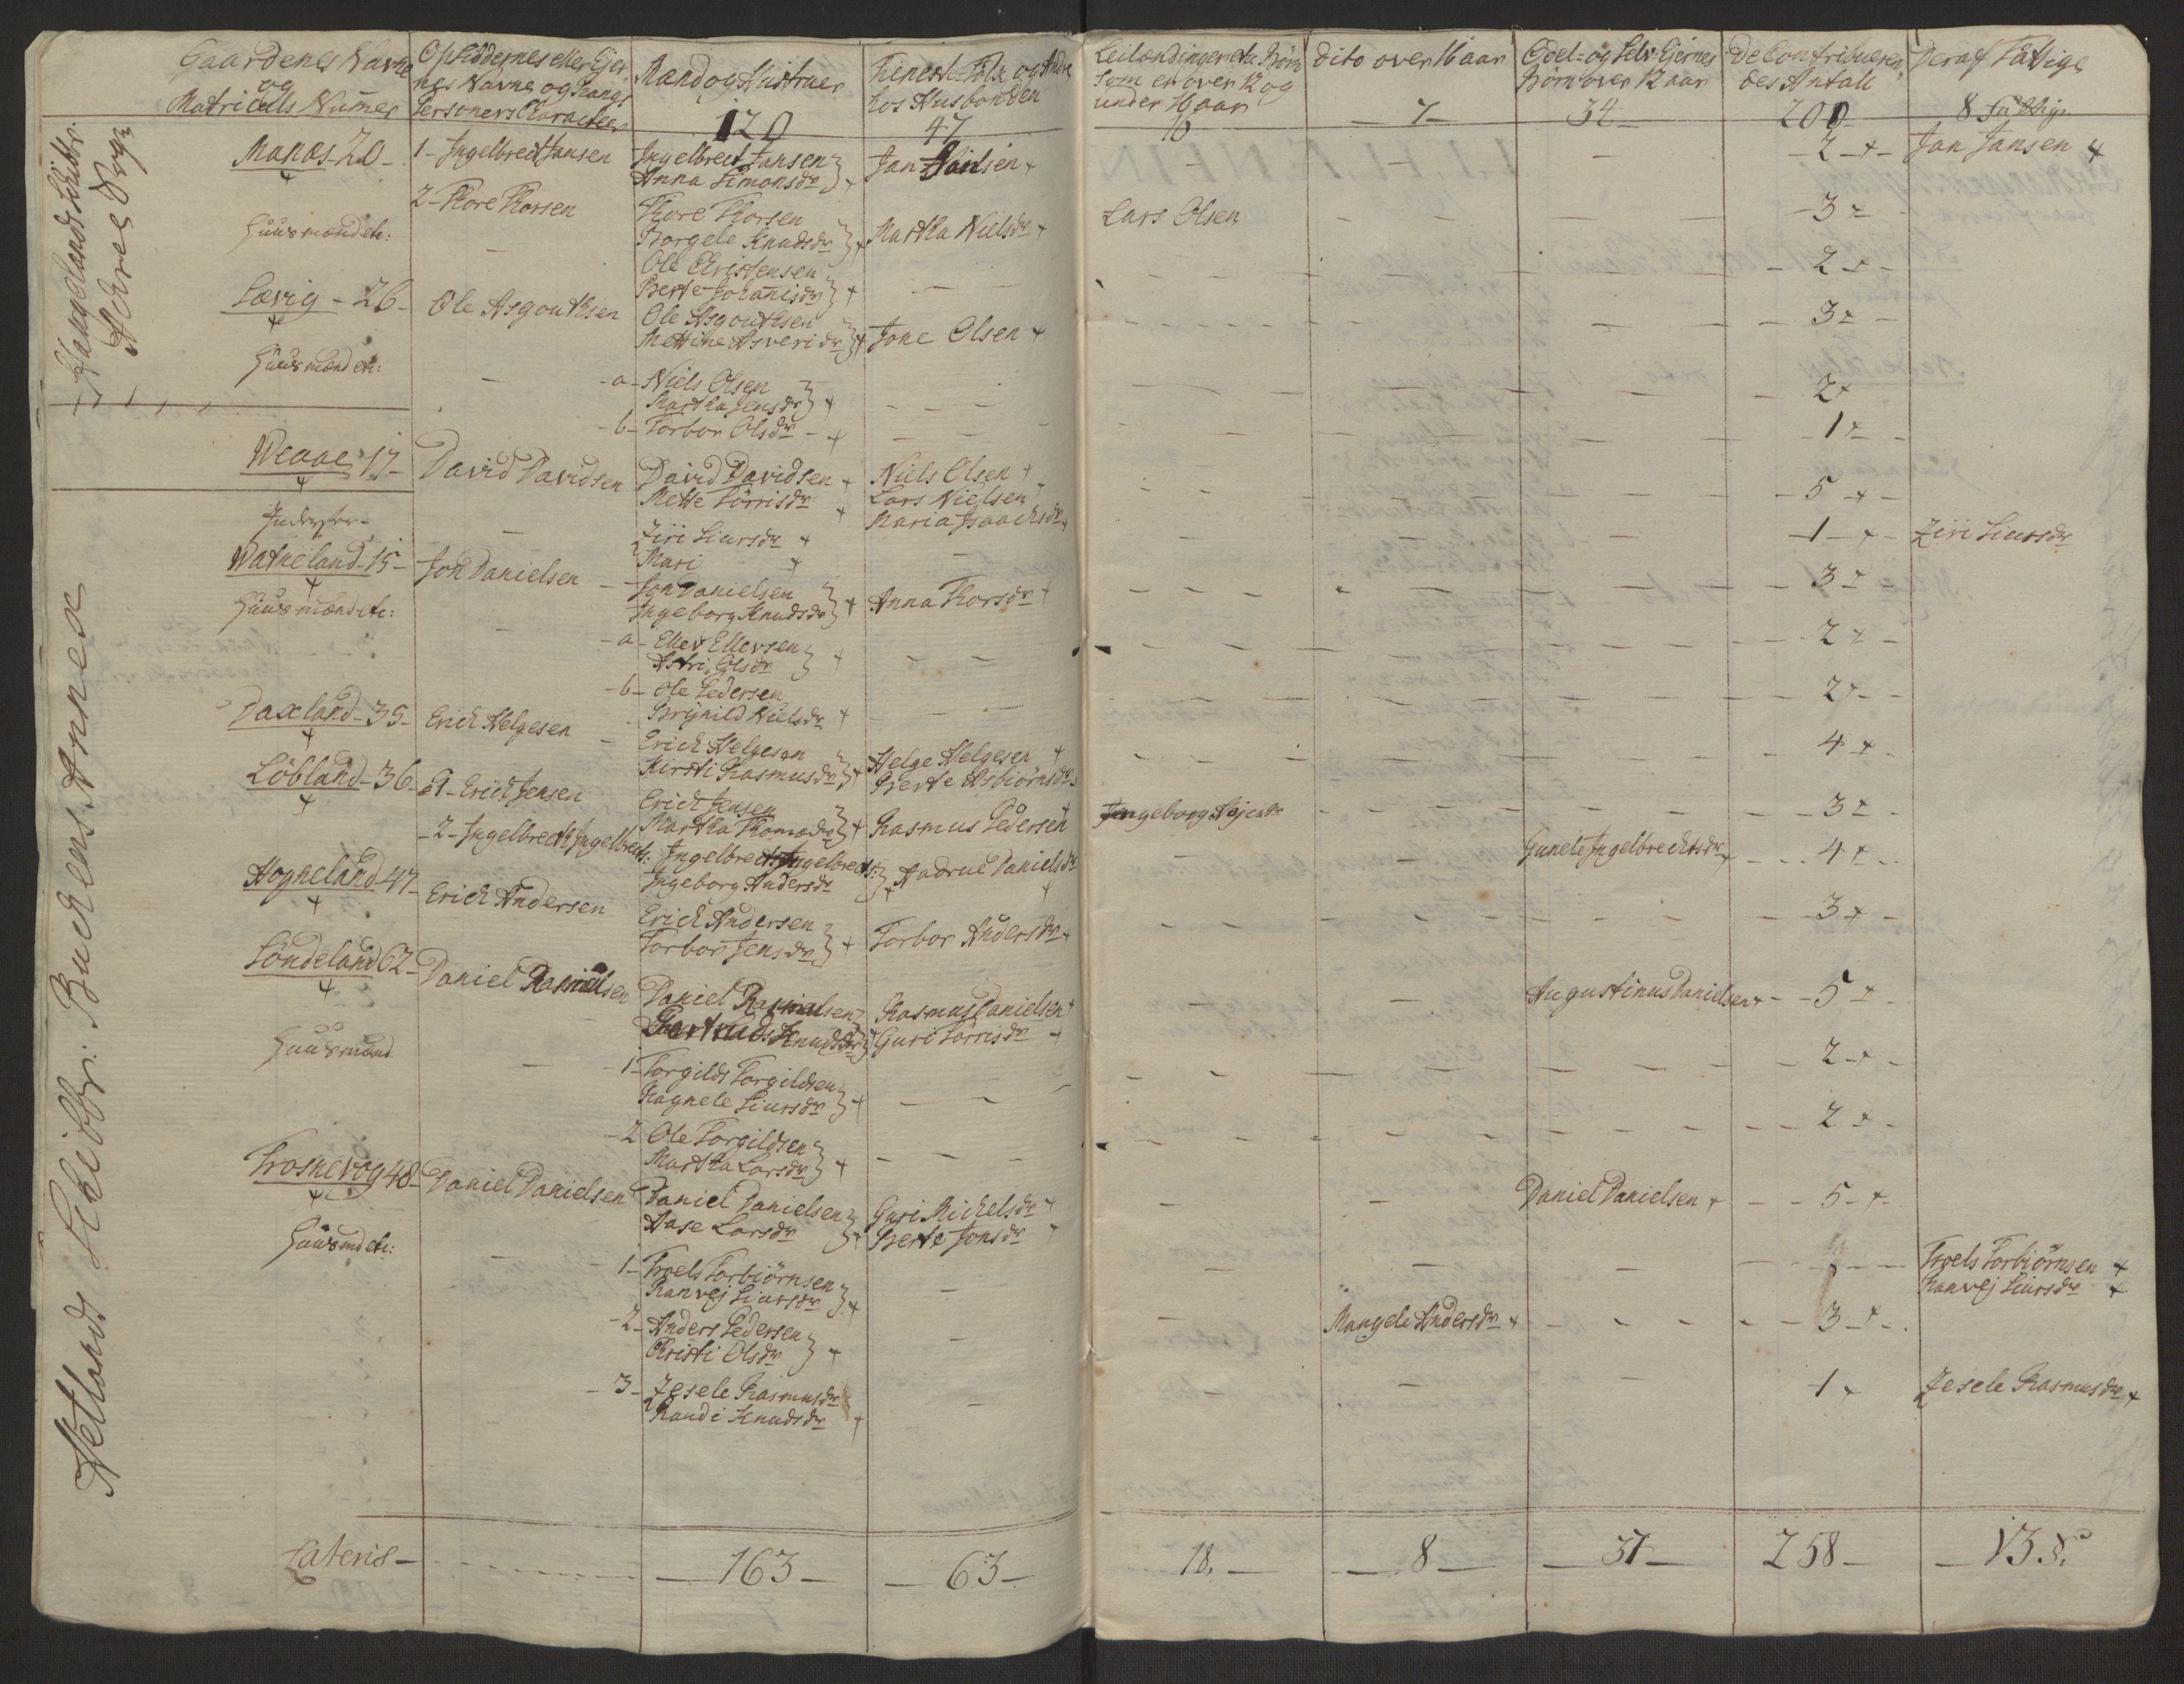 Gaardenes Navne
og
Matriculs Numer
Opsiddernes eller Ejer-
nes Navne og Rangs
Personers Characteer
Mænd og Hustruer
120
Tieneste-Folk og Andre
hos Husbonden
47
Leilændingernes Børn
som er over 12 og
under 16 aar
16
dito over 16 aar
7
Odel- og Selv-Ejernes
Børn over 12 aar
34
De Contribueren-
des Antall
200
Deraf Fattige
8 Fattige
Haugelands Skibbr:
Netlands Skibbr: Buckens Annex
Manas - 20 -
1 - Ingelbrect Jansen
Ingelbrect Jansen
Anna Simonsdr
Jan
2
Jan Jansen
2 - Thore Thorsen
Thore Thorsen
Borgele Knudsdr
Martha Nielsdr
Lars Olsen
3
Huusmænd etc:
Ole Christensen
Berte Johanisdr
2
Lævig - 26 -
Ole Asgouthsen
Ole Asgouthsen
Mettine Asveri dr
Jone Olsen
3
Huusmænd etc:
a - Niels Olsen
Martha Jensdr
2
b - Torbor Olsdr
1
17 -
David Davidsen
David Davidsen
Mette Törrisdr
Niels Olsen
Lars Nielsen
Maria Isaachsdr
5
Inderster -
Ziri Siursdr
Mari
1
Ziri Siursdr
Watneland - 15 -
Jon Danielsen
Jon Danielsen
Ingeborg Knudsdr
Anna Thorsdr
3
Huusmænd etc:
a - Eller Ellevsen
Astri Olsdr
2
b - Ole Pedersen
Brynild Nielsdr
2
Daxland - 35 -
Erich Helgesen
Erich Helgesen
Kirsti Rasmusdr
Helge Helgesen
Berte Asbiörnsdr
4
Löbland - 36 -
1 - Erich Jensen
Erich Jensen
Martha Thomasdr
Rasmus Pedersen
3
2 - Ingelbrecht Ingelbrects:
Ingelbrect Ingelbrects:
Ingeborg Andersdr
Aadrue Danielsdr
Gunele Ingelbrechtsdr
4
Hogneland 47 -
Erich Andersen
Erich Andersen
Torbor Jensdr
Torbor Andersdr
3
Söndeland 62 -
Daniel
Daniel
Knudsdr
Rasmus Danielsen
Guri Törrisdr
Augustinus Danielsen
5
Huusmænd
1 - Torgilds Torgildsen
Ragnele Siursdr
2
2 Ole Torgildsen
Martha Larsdr
2
Trosnevog 48 -
Daniel Danielsen
Daniel Danielsen
Aase Larsdr
Guri Michelsdr
Berte Jonsdr
Daniel Danielsen
5
Huusmd etc:
1 - Troels Torbiörnsen
Ranvej Siursdr
Troels Torbiörnsen
Ranvej Siursdr
2 - Anders Pedersen
Christi Olsdr
Mangele Andersdr
3
3 - Zesele Rasmusdr
Randi Knudsdr
1
Zesele Rasmusdr
Lateris -
163
63
18
8
37
258
13